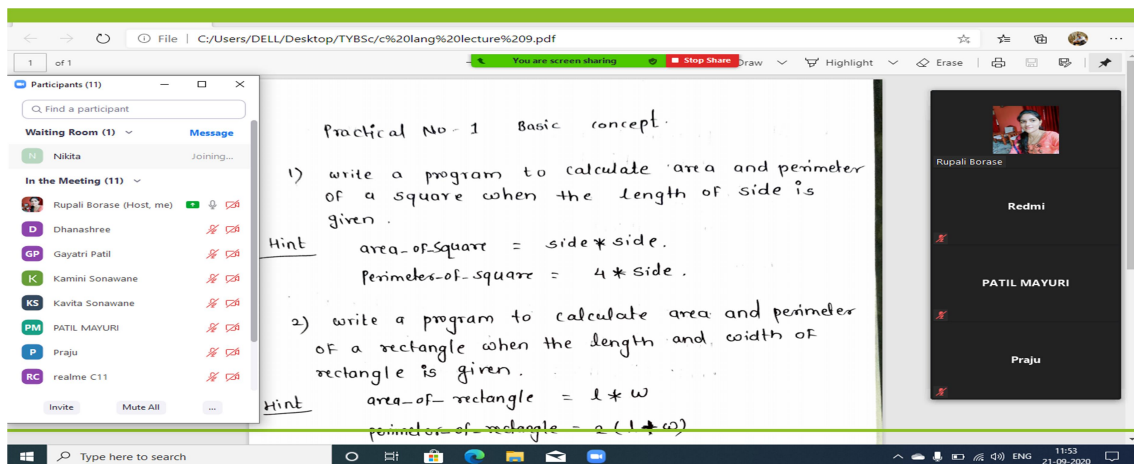 File | C:/Users/DELL/Desktop/TYBSc/c%20lang%20lecture%209.pdf
1 of 1
You are screen sharing
Stop Share
Draw
Highlight
Erase
Participants (11)
Find a participant
Waiting Room (1)
Message
N Nikita
Joining...
In the Meeting (11)
Rupali Borase (Host, me)
D Dhanashree
GP Gayatri Patil
K Kamini Sonawane
KS Kavita Sonawane
PM PATIL MAYURI
P Praju
RC realme C11
Invite
Mute All
...
Practical No - 1 Basic concept.
1) write a program to calculate area and perimeter
of a square when the length of side is
given.
Hint area_of_square = side * side.
Perimeter_of_square = 4 * side.
2) write a program to calculate area and perimeter
of a rectangle when the length and width of
rectangle is given.
Hint area_of_rectangle = l * w
perimeter_of_rectangle = 2 (l + w)
Rupali Borase
Redmi
PATIL MAYURI
Praju
Type here to search
ENG
11:53
21-09-2020